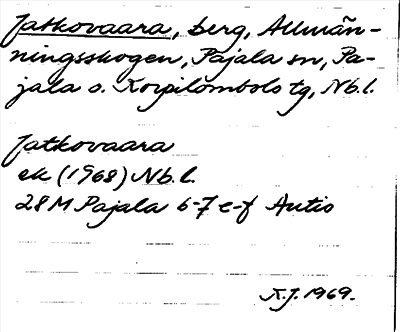 Jatkovaara, berg, Allmän-
ningsskogen, Pajala sn, Pa-
jala o. Korpilombolo tg, Nb.l.
Jatkovaara
ek (1968) Nb.l.
28M Pajala 6-7 e-f Autio
K.J. 1969.